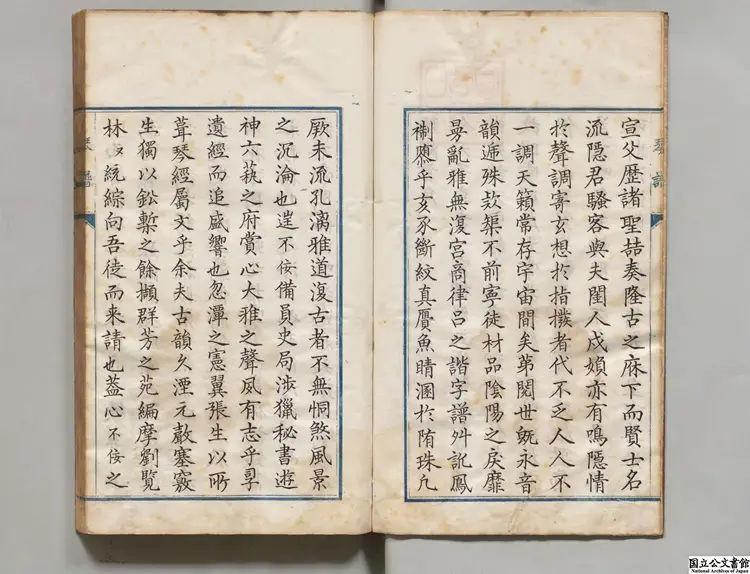 宣父歴諸聖喆奏隆古之庥下而賢士名
流隠君騷客與夫閨人戍媍亦有鳴隠情
扵聲調寄玄想扵指撥者代不乏人人不
一調天籟常存宇宙間矣第閱世旣永音
韻遞殊欵榘不前寧徒材品陰陽之戾靡
曼亂雅無復宮商律吕之諧字譜舛訛鳳
褵慕乎亥豕斷紋真贗魚睛溷扵隋珠凢
厥末流孔漓雅道復古者不無恫煞風景
之沉淪也逹不佞備員史局涉獵秘書遊
神六蓺之府賞心大雅之聲夙有志乎尋
遺經而追盛響也忽潭之憲翼張生以所
葺琴經屬文乎余夫古韻久湮元歊塞竅
生獨以鈆槧之餘擷群芳之苑編摩劉覧
林々綂綜向吾徒而来請也葢心不佞之
琴譜
国立公文書館
National Archives of Japan